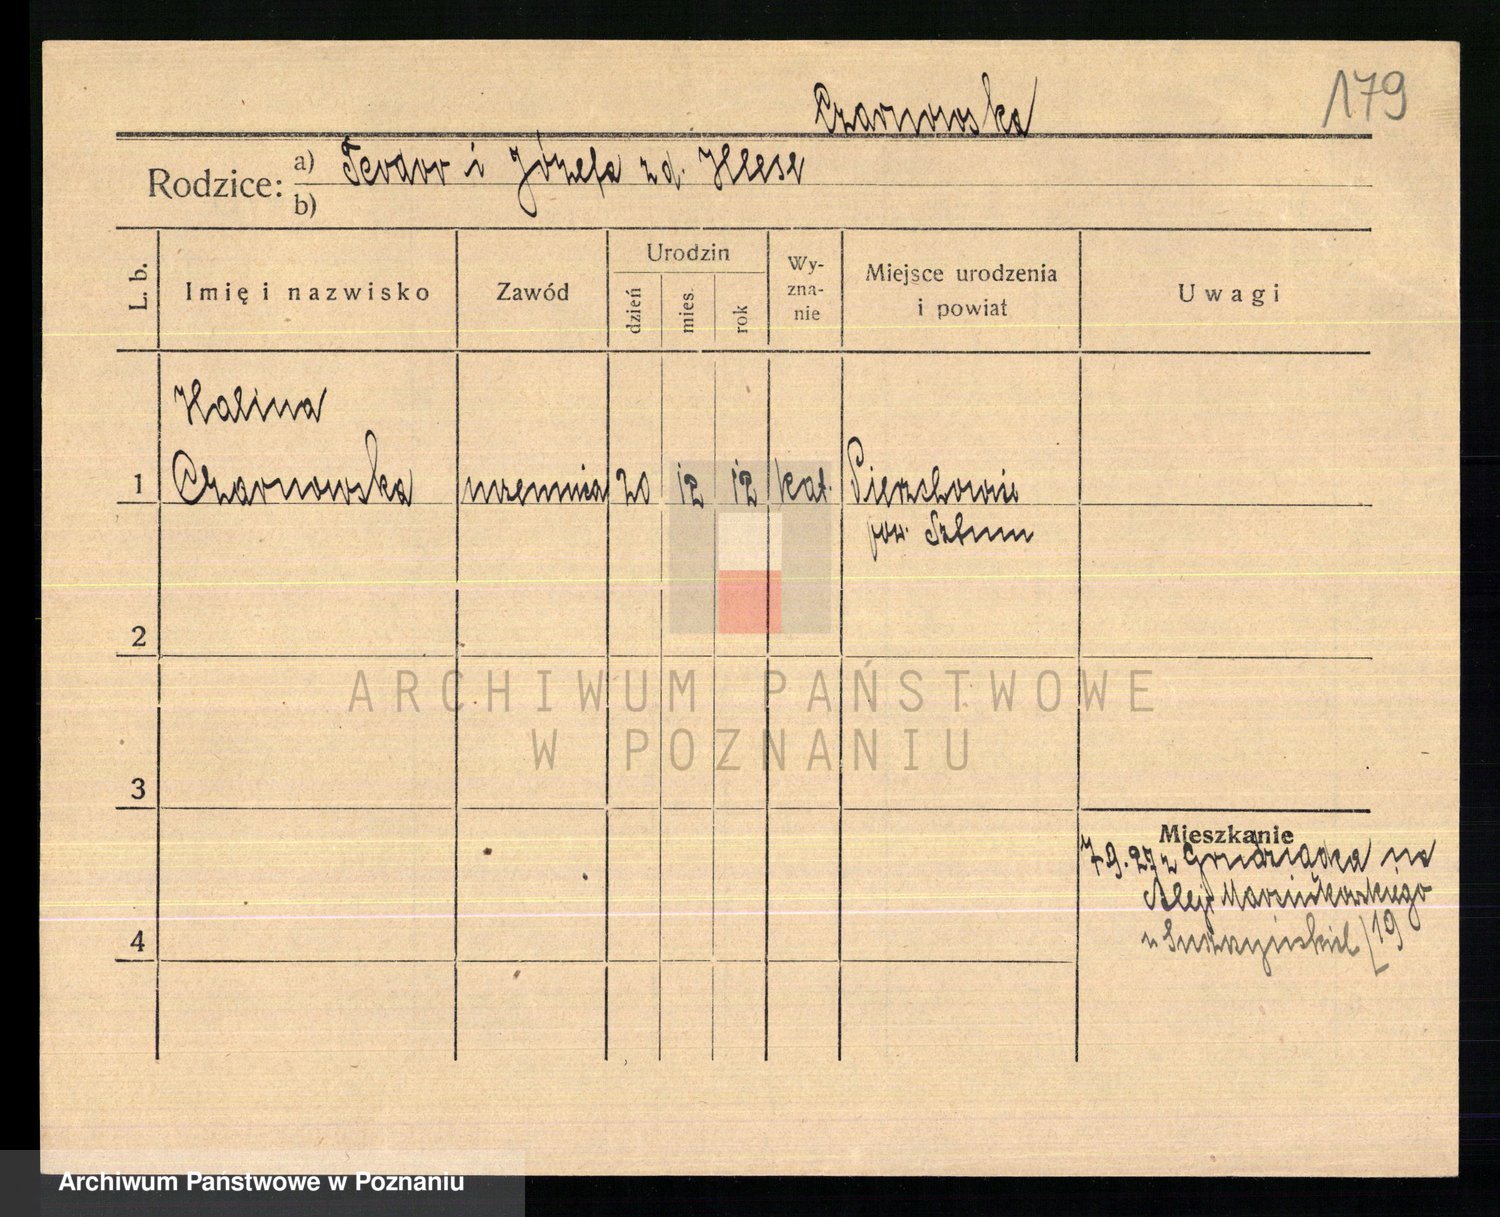 179
Czarnowska
Rodzice: a) Teodor i Józefa zd. Hesse
b)
L. b.
Imię i nazwisko
Zawód
Urodzin
dzień
mies.
rok
Wy-
zna-
nie
Miejsce urodzenia
i powiat
Uwagi
Halina
1 Czarnowska uczennica 20 12 12 kat. Pierzchowice
pow. Sztum
2
ARCHIWUM PAŃSTWOWE
W POZNANIU
3
Mieszkanie
7.9.27 z Grudziądza na
Aleje Marcinkowskiego
19
4
Archiwum Państwowe w Poznaniu